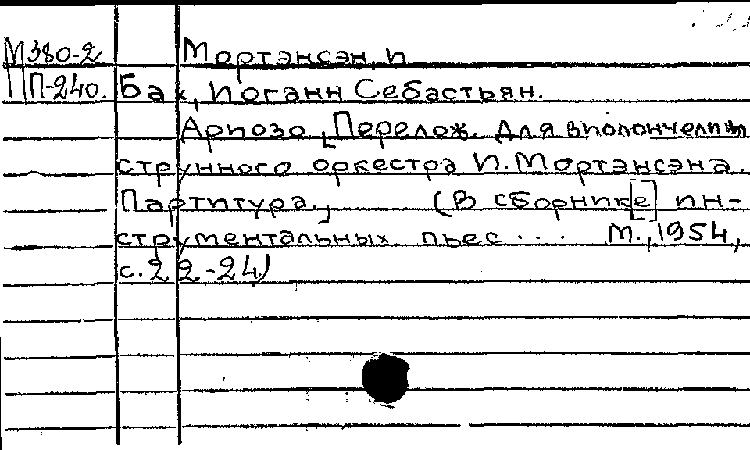 М380-2 Мортэнсэн, И
ПП-240. Бах, Иоганн Себастьян.
Ариозо [Перелож. для виолончели и
струнного оркестра И. Мортэнсэна.
Партитура.] (В сборник[е] ин-
струментальных пьес ... М., 1954,
с. 22-24)